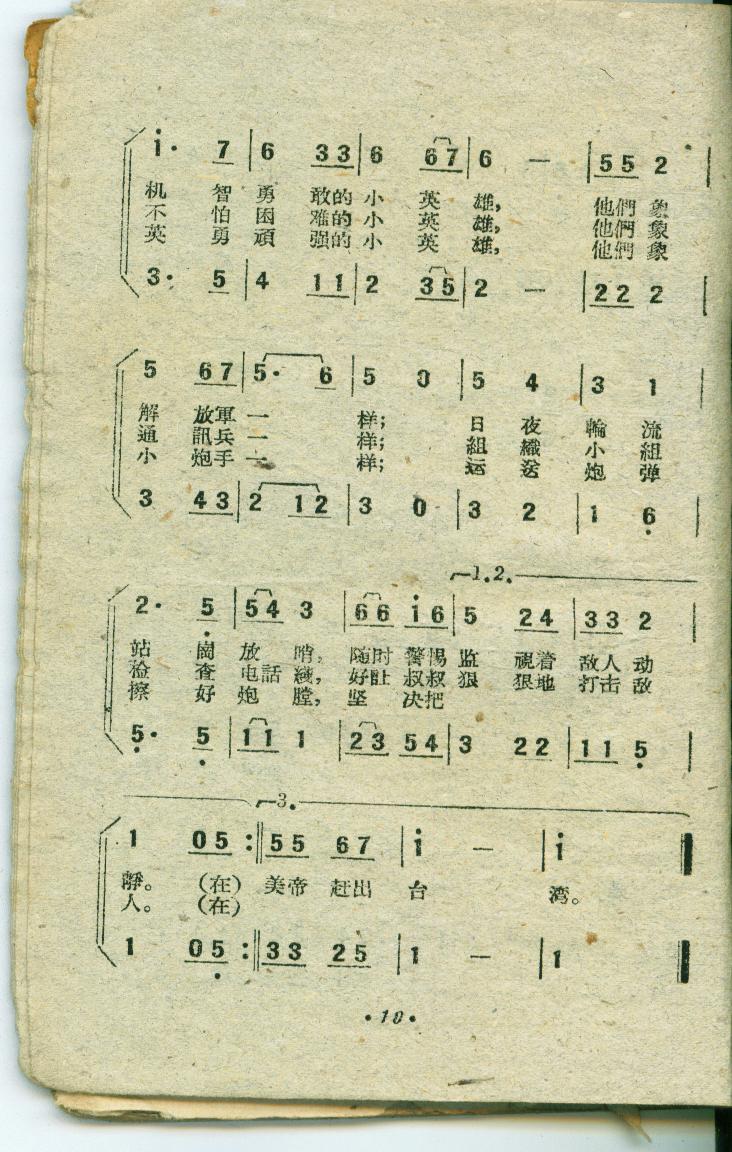 i· 7 | 6 3 3 | 6 6 7 | 6 — | 5 5 2 |
机 智 勇 敢的 小 英 雄, 他們 象
不 怕 困 难的 小 英 雄, 他們 象
英 勇 頑 强的 小 英 雄, 他們 象
3· 5 | 4 1 1 | 2 3 5 | 2 — | 2 2 2 |
5 6 7 | 5· 6 | 5 0 | 5 4 | 3 1 |
解 放軍 一 样; 日 夜 輪 流
通 訊兵 一 样; 組 織 小 組
小 炮手 一 样; 运 送 炮 弹
3 4 3 | 2 1 2 | 3 0 | 3 2 | 1 6 |
1.2.
2· 5 | 5 4 3 | 6 6 i 6 | 5 2 4 | 3 3 2 |
站 崗 放 哨, 随时 警惕 监 視着 敌人 动
检 查 电話 綫, 好 叔叔 狠 狠地 打击 敌
擦 好 炮 膛, 坚 决把
5· 5 | 1 1 1 | 2 3 5 4 | 3 2 2 | 1 1 5 |
3.
1 0 5 :‖ 5 5 6 7 | i — | i ‖
靜。 (在) 美帝 赶出 台 湾。
人。 (在)
1 0 5 :‖ 3 3 2 5 | 1 — | 1 ‖
·10·